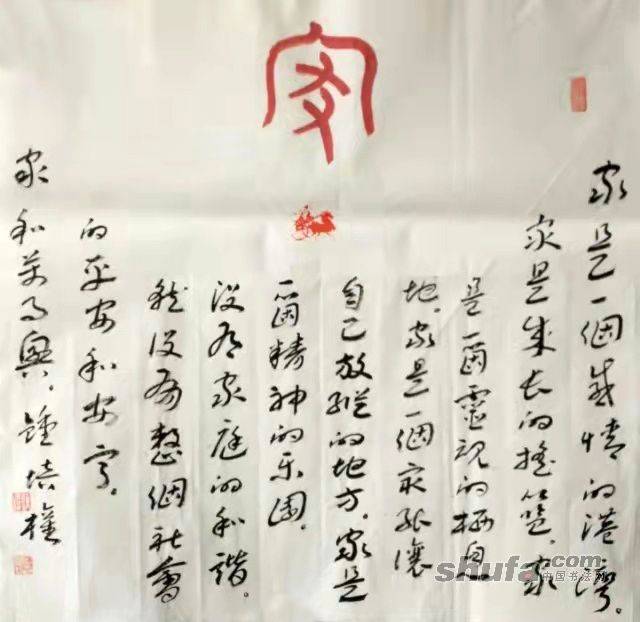 家
家是一個感情的港灣。
家是成长的搖篮。家
是一個靈魂的栖息
地。家是一個最能讓
自己放縱的地方。家是
一個精神的乐园。
没有家庭的和諧。
就没有整個社會
的平安和安宁。
家和萬事興。鍾培權
shufa.com
中国书法网